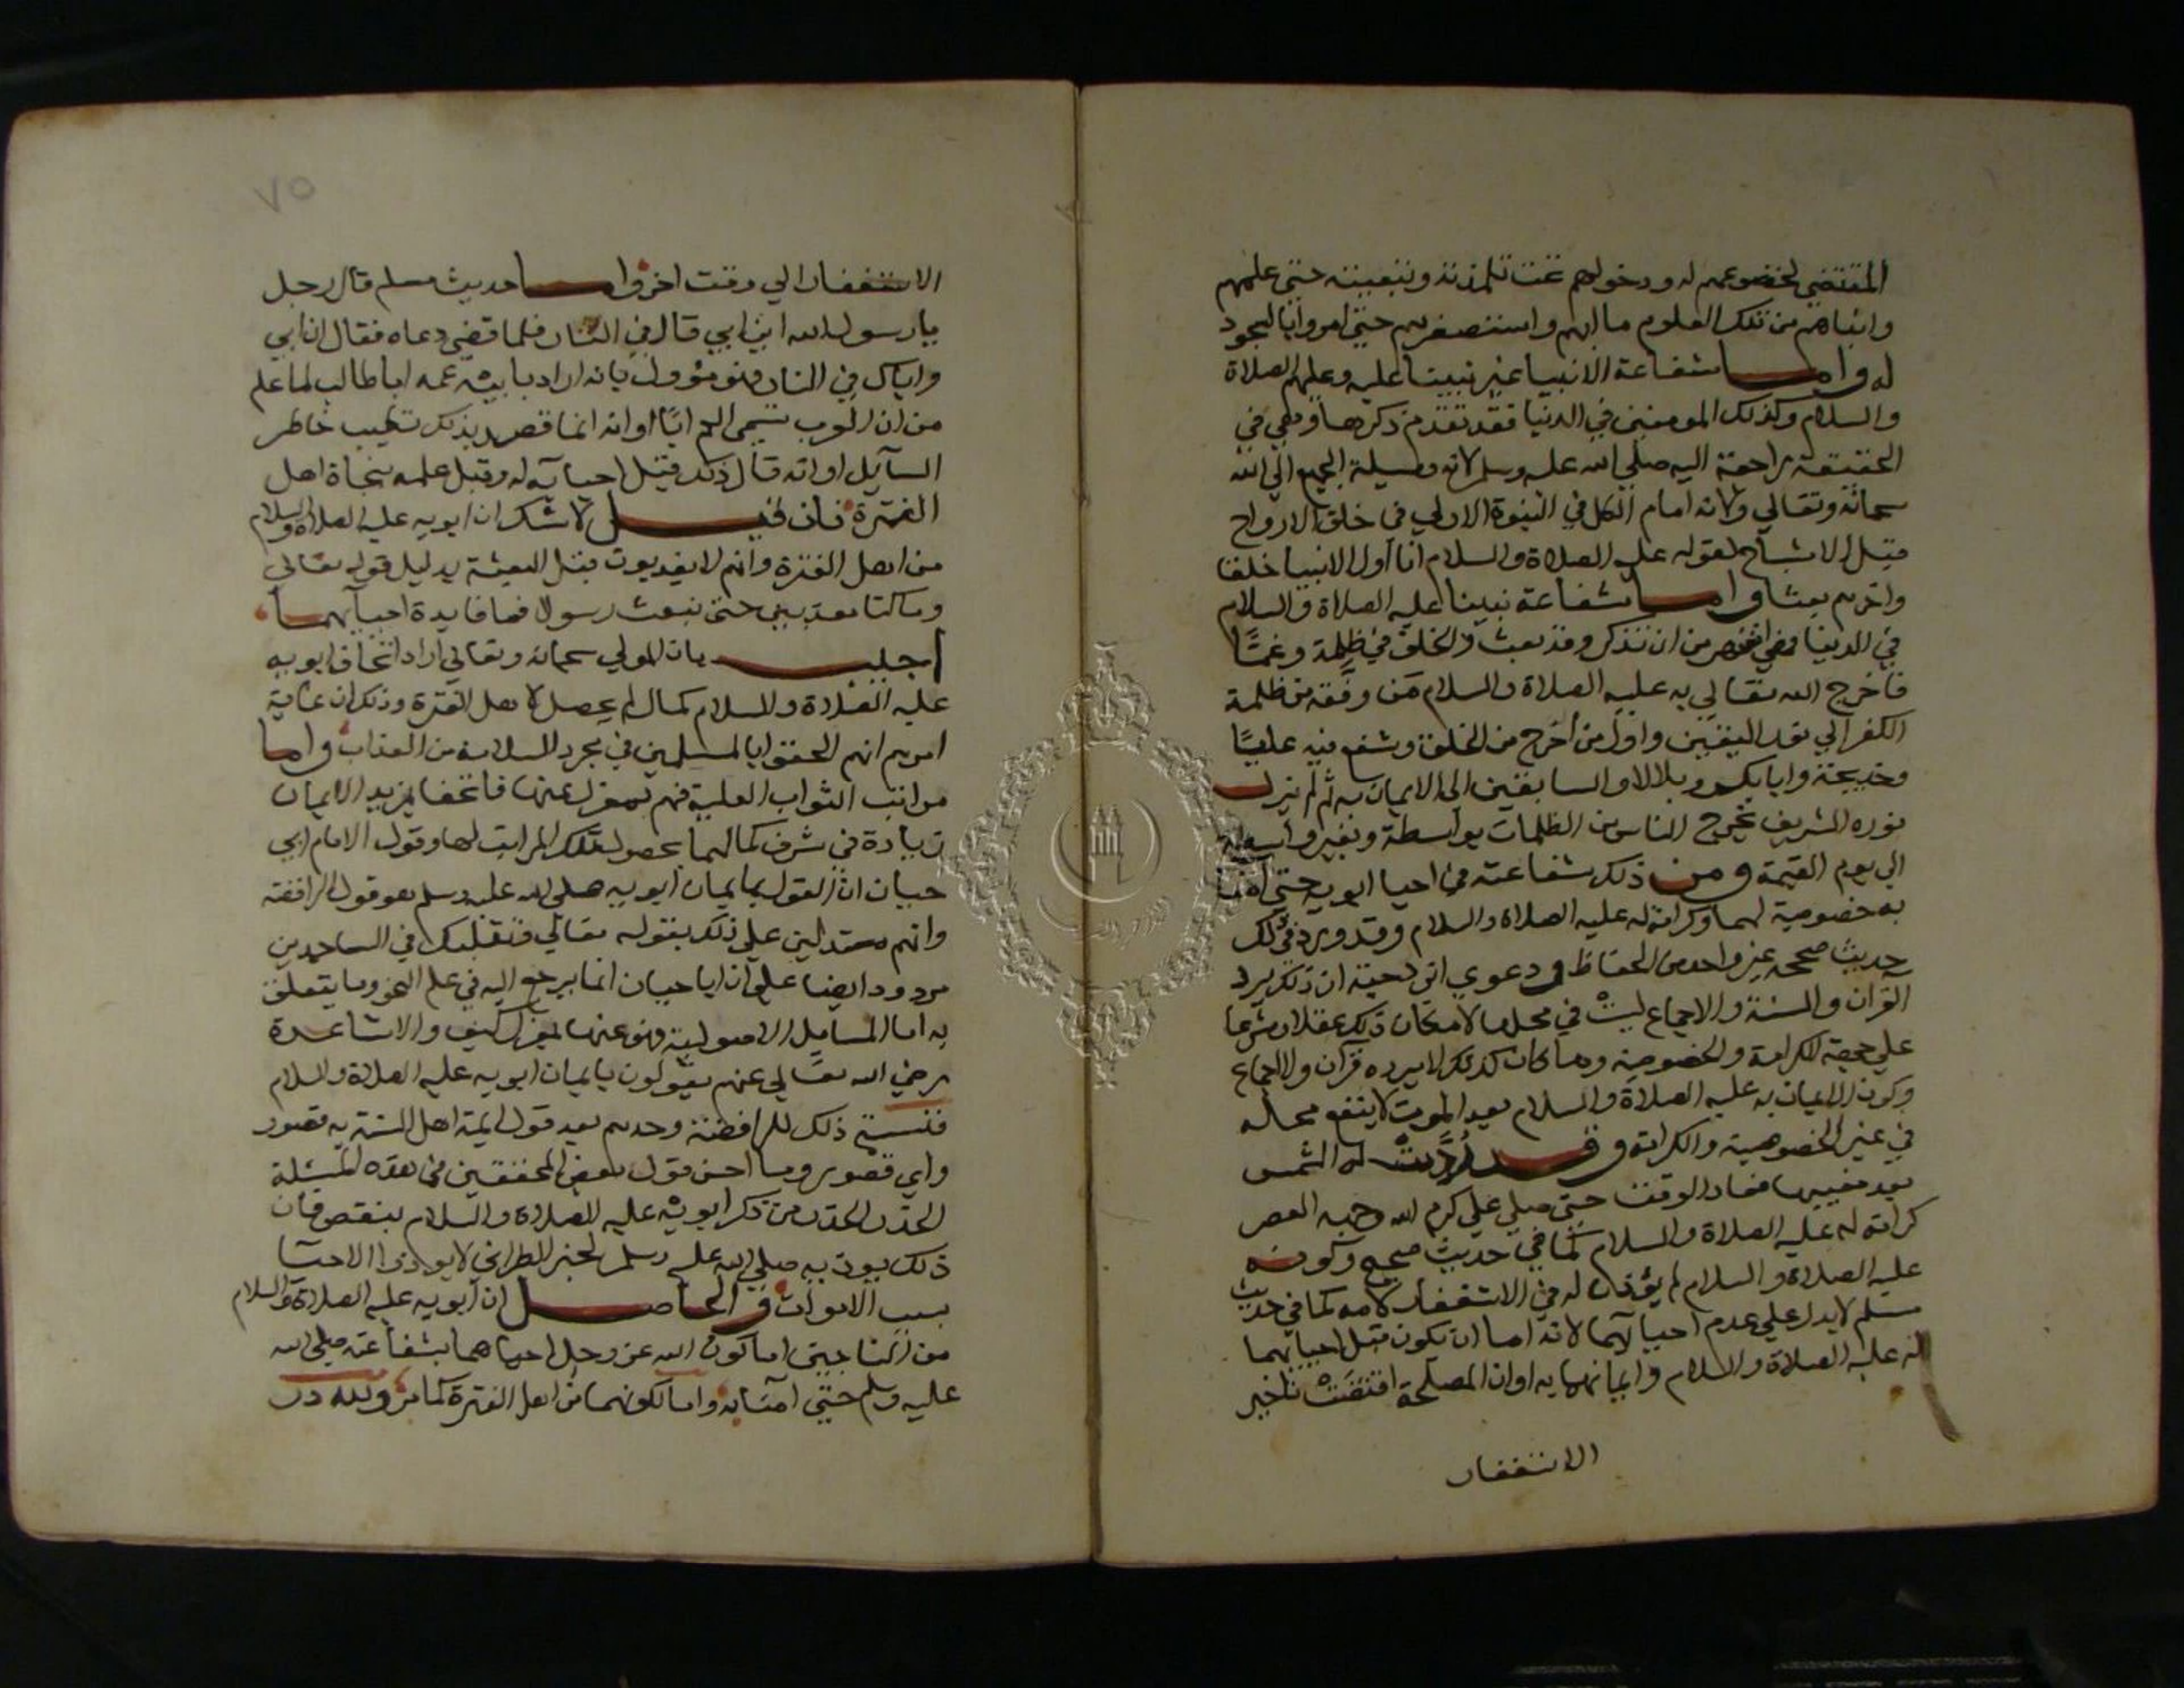 المقتضي لخضوعهم له ودخولهم تحت تلمذته وتبعيته حتى علمهم
وانباهم من تلك العلوم ما ابهم واستصغرهم حتى امروا بالسجود
له واما شفاعة الانبيا غير نبينا عليه وعليهم الصلاة
والسلام وكذلك المومنين في الدنيا فقد تقدم ذكرها وهي في
الحقيقة راجعة اليه صلى الله عليه وسلم لانه وسيلة الجميع الي الله
سبحانه وتعالي ولانه امام الكل في النبوة الاولي في خلق الارواح
قبل الاشباح لقوله عليه الصلاة والسلام انا اول الانبيا خلقا
واخرهم بعثا واما شفاعة نبينا عليه الصلاة والسلام
في الدنيا فهي اشهر من ان تذكر وقد بعث والخلق في ظلمة وغمة
فاخرج الله تعالي به عليه الصلاة والسلام من وفقه من ظلمة
الكفر الي نور اليقين واول من اخرج من الخلق وشفع فيه عليا
وخديجة وابا بكر وبلالا والسابقين الى الايمان به ثم لم يزل
نوره الشريف يخرج الناس من الظلمات بواسطة وبغير واسطة
الي يوم القيمة ومن ذلك شفاعته في احيا ابويه حتى آمنا
به خصوصية لهما وكرامة له عليه الصلاة والسلام وقد ورد في ذلك
حديث صححه غير واحد من الحفاظ ودعوي ابن دحية ان ذلك يرد
القرآن والسنة والاجماع ليست في محلها لامكان ذلك عقلا وشرعا
علي جهة الكرامة والخصوصية وما كان كذلك لا يرده قرآن ولا اجماع
وكون الايمان به عليه الصلاة والسلام بعد الموت لا ينفع محاله
في غير الخصوصية والكرامة وقد ردت له الشمس
بعد مغيبها فعاد الوقت حتى صلي علي كرم الله وجهه العصر
كرامة له عليه الصلاة والسلام كما في حديث صحيح وكونه
عليه الصلاة والسلام لم يؤذن له في الاستغفار لامه كما في حديث
مسلم لا يدل علي عدم احيائهما لانه اما ان يكون قبل احيائهما
له عليه الصلاة والسلام وايمانهما به او ان المصلحة اقتضت تاخير
الاستغفار
٧٥
الاستغفار الي وقت اخر واما حديث مسلم قال رجل
يا رسول الله اين ابي قال في النار فلما قضي دعاه فقال ان ابي
واباك في النار فهو مؤول بانه اراد بابيه عمه ابا طالب لما علم
من ان العرب تسمي العم ابًا او انه انما قصد بذلك تطييب خاطر
السآيل او انه قال ذلك قبل احيآيه له وقبل علمه بنجاة اهل
الفترة فان قيل لا شك ان ابويه عليه الصلاة والسلام
من اهل الفترة وانهم لا يعذبون قبل البعثة بدليل قوله تعالي
وما كنا معذبين حتى نبعث رسولا فما فايدة احيآيهما
اجيب بان المولي سبحانه وتعالي اراد اتحاف ابويه
عليه الصلاة والسلام كمال لم يحصل لاهل الفترة وذلك ان غاية
امرهم انهم الحقوا بالمسلمين في مجرد السلامة من العذاب واما
مراتب الثواب العلية فهم بمعزل عنها فاتحفا بمزيد الايمان
زيادة في شرف كمالهما بحصول تلك المراتب لهما وقول الامام ابي
حيان ان القول بايمان ابويه صلى الله عليه وسلم هو قول الرافضة
وانهم مستدلين علي ذلك بقوله تعالي وتقلبك في الساجدين
مردود ايضا علي ان ابا حيان انما يرجع اليه في علم النحو وما يتعلق
به اما المسايل الاصولية فهو عنها بمعزل كيف والاشاعرة
رضي الله تعالي عنهم يقولون بايمان ابويه عليه الصلاة والسلام
فنسبة ذلك للرافضة وحدهم بعد قول ايمة اهل السنة به قصور
واي قصور وما احسن قول بعض المحققين في هذه المسئلة
الحذر الحذر من ذكر ابويه عليه الصلاة والسلام بنقص فان
ذلك يوذيه صلى الله عليه وسلم لخبر الطبراني لا توذوا الاحيا
بسب الاموات والحاصل ان ابويه عليه الصلاة والسلام
من الناجين اما كون الله عز وجل احياهما بشفاعته صلى الله
عليه وسلم حتى آمنا به واما لكونهما من اهل الفترة كما مر ولله در